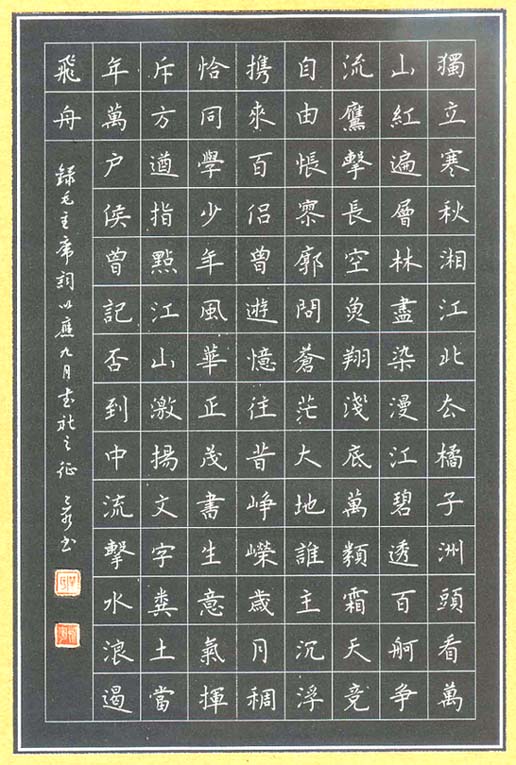 獨立寒秋湘江北厺橘子洲頭看萬
山紅遍層林盡染漫江碧透百舸争
流鷹擊長空魚翔淺底萬類霜天竞
自由悵寥廓問蒼茫大地誰主沉浮
携來百侣曾遊憶往昔峥嶸歲月稠
恰同學少年風華正茂書生意氣揮
斥方遒指點江山激揚文字糞土當
年萬户侯曾記否到中流擊水浪遏
飛舟
録毛主席詞以應九月書社之征